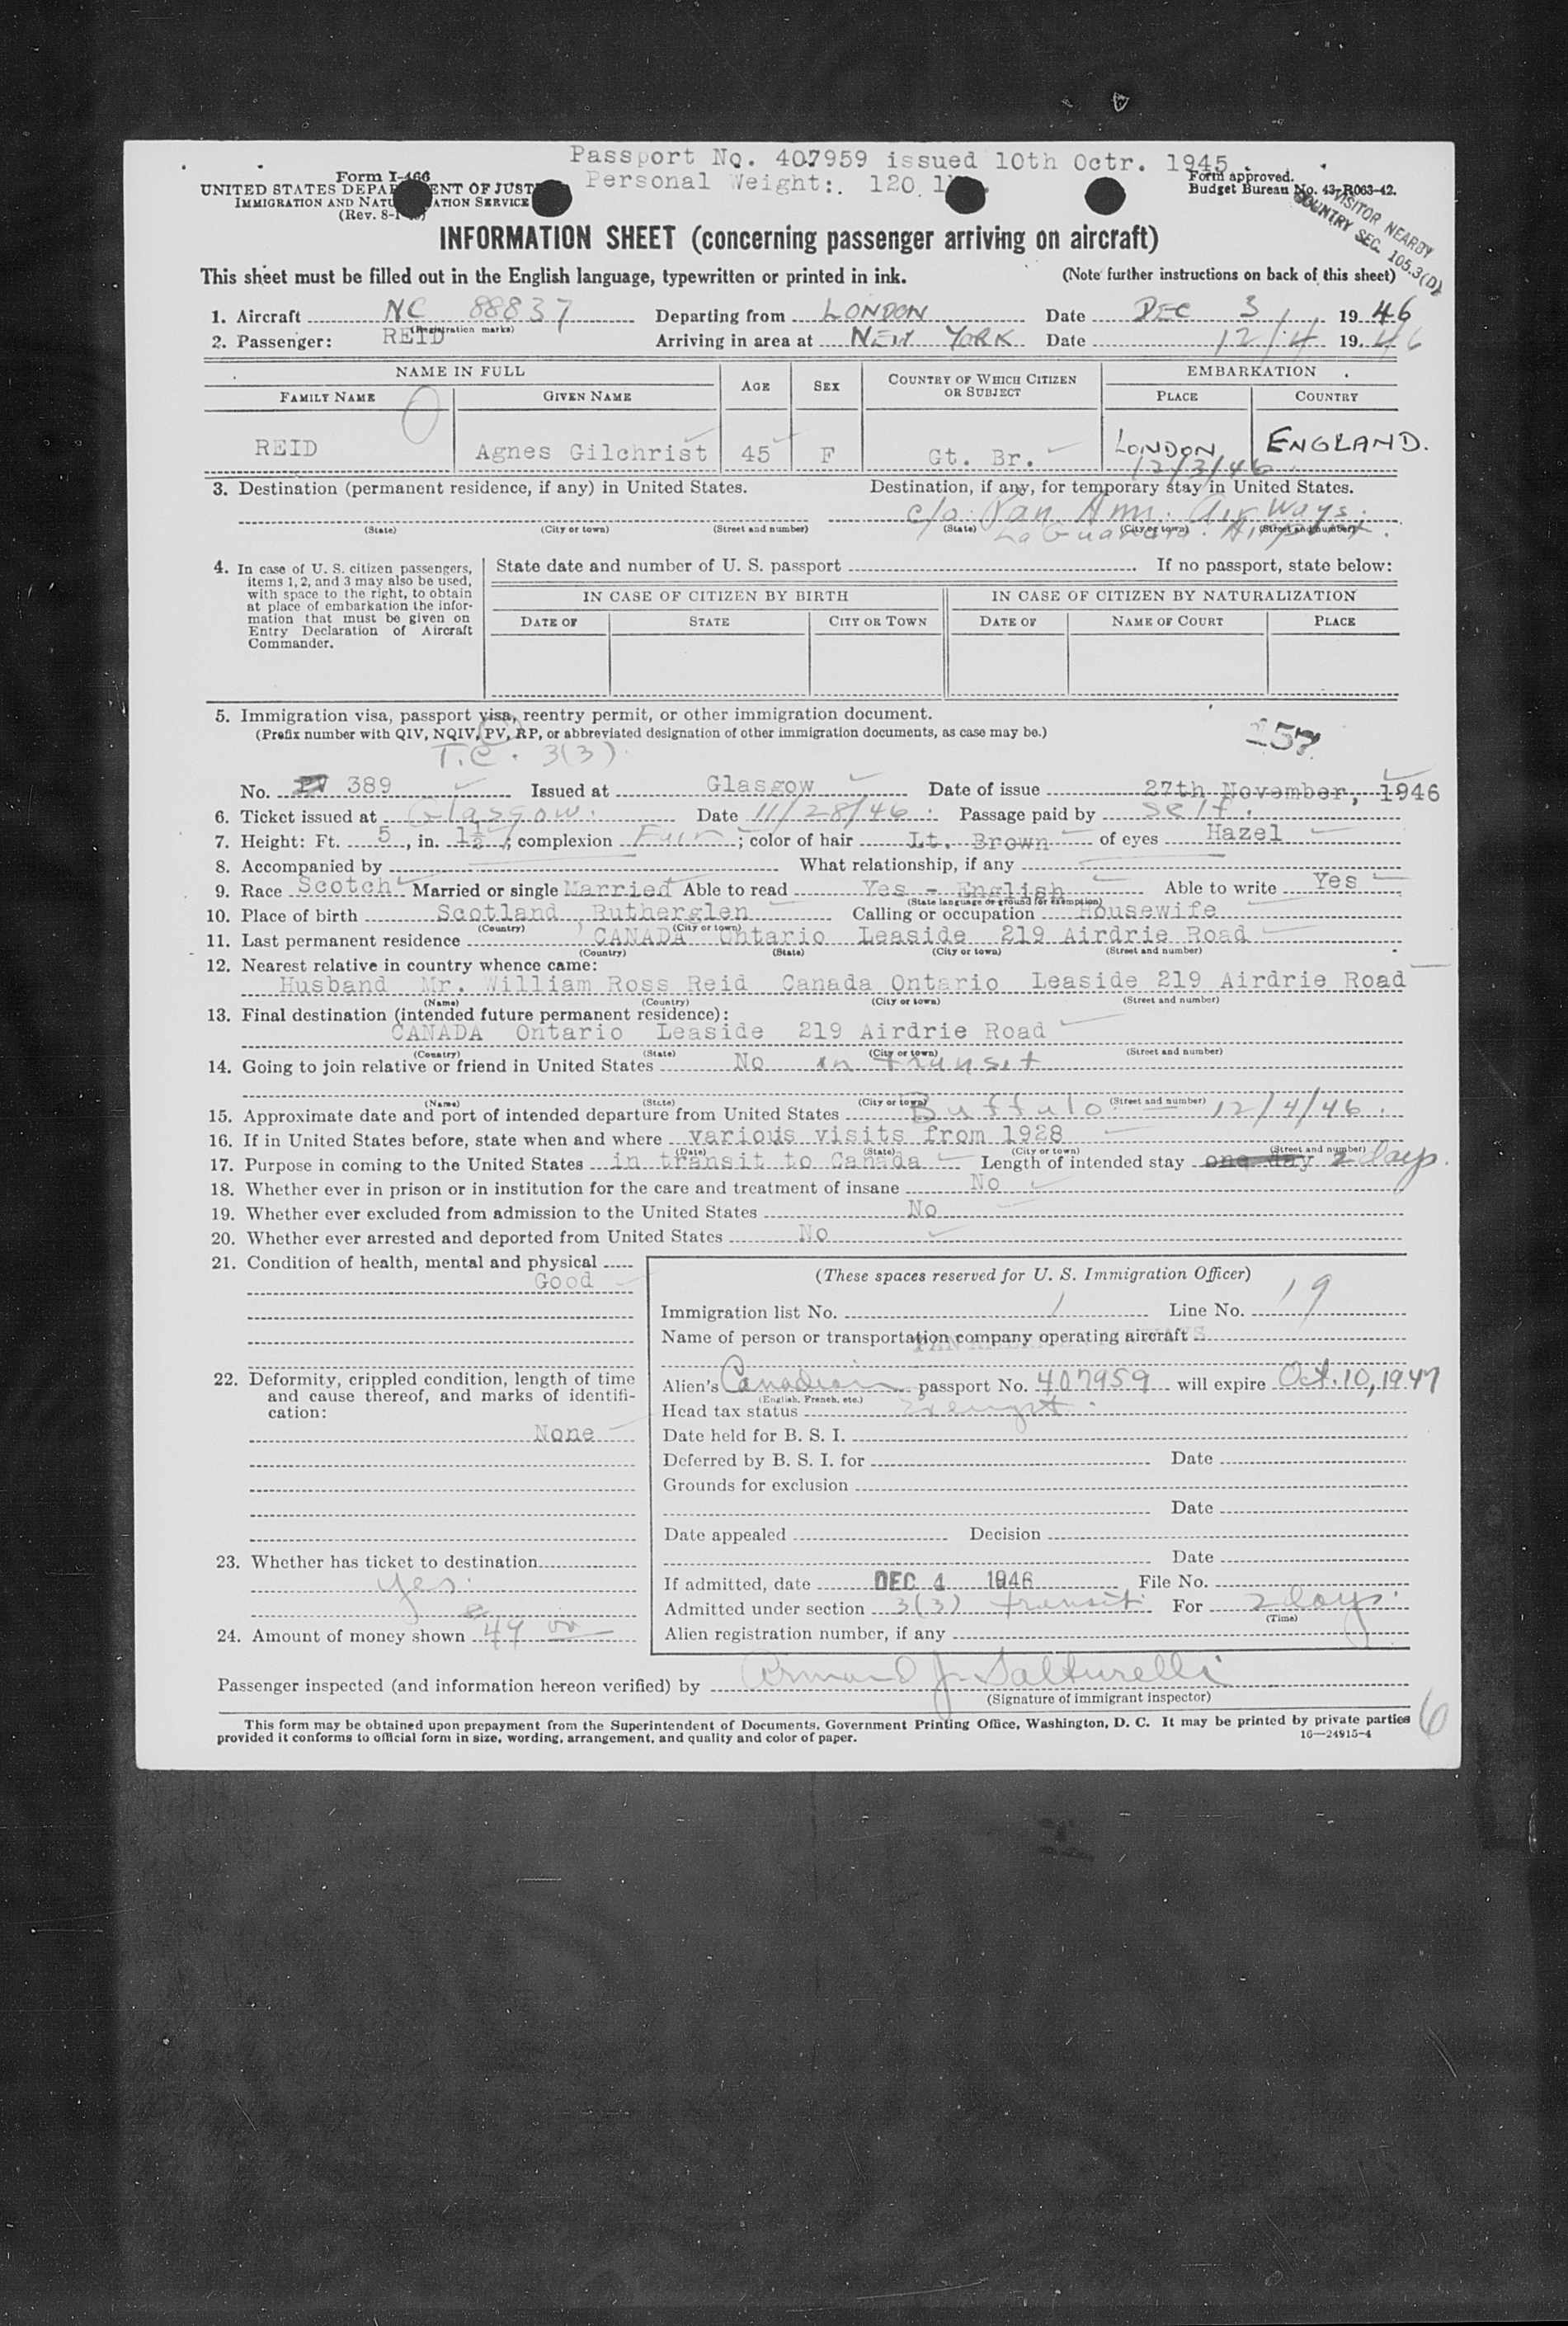 Passport No. 407959 issued 10th Octr. 1945.
Personal Weight: 120
Form I-466
UNITED STATES DEPARTMENT OF JUSTICE
IMMIGRATION AND NATURALIZATION SERVICE
(Rev. 8-1
Form approved.
Budget Bureau No. 43-R063-42.
VISITOR NEARBY
COUNTRY SEC. 105.3(D)
INFORMATION SHEET (concerning passenger arriving on aircraft)
This sheet must be filled out in the English language, typewritten or printed in ink. (Note further instructions on back of this sheet)
1. Aircraft NC 88837 Departing from LONDON Date DEC 3 1946
(Registration marks)
2. Passenger: REID Arriving in area at NEW YORK Date 12/4 1946
NAME IN FULL AGE SEX COUNTRY OF WHICH CITIZEN OR SUBJECT EMBARKATION
FAMILY NAME GIVEN NAME PLACE COUNTRY
REID Agnes Gilchrist 45 F Gt. Br. LONDON ENGLAND.
12/3/46
3. Destination (permanent residence, if any) in United States. Destination, if any, for temporary stay in United States.
c/o Pan Am. Air Ways.
(State) (City or town) (Street and number) (State) (City or town) (Street and number)
La Guardia Airport.
4. In case of U. S. citizen passengers, items 1, 2, and 3 may also be used, with space to the right, to obtain at place of embarkation the information that must be given on Entry Declaration of Aircraft Commander.
State date and number of U. S. passport If no passport, state below:
IN CASE OF CITIZEN BY BIRTH IN CASE OF CITIZEN BY NATURALIZATION
DATE OF STATE CITY OR TOWN DATE OF NAME OF COURT PLACE
5. Immigration visa, passport visa, reentry permit, or other immigration document.
(Prefix number with QIV, NQIV, PV, RP, or abbreviated designation of other immigration documents, as case may be.)
T.C. 3(3)
257
No. PV 389 Issued at Glasgow Date of issue 27th November, 1946
6. Ticket issued at Glasgow. Date 11/28/46 Passage paid by self.
7. Height: Ft. 5, in. 1½; complexion Fair; color of hair Lt. Brown of eyes Hazel
8. Accompanied by What relationship, if any
9. Race Scotch Married or single Married Able to read Yes - English Able to write Yes
(State language or ground for exemption)
10. Place of birth Scotland, Rutherglen Calling or occupation Housewife
(Country) (City or town)
11. Last permanent residence CANADA Ontario Leaside 219 Airdrie Road
(Country) (State) (City or town) (Street and number)
12. Nearest relative in country whence came:
Husband Mr. William Ross Reid Canada Ontario Leaside 219 Airdrie Road
(Name) (Country) (City or town) (Street and number)
13. Final destination (intended future permanent residence):
CANADA Ontario Leaside 219 Airdrie Road
(Country) (State) (City or town) (Street and number)
14. Going to join relative or friend in United States No in transit
(Name) (State) (City or town) (Street and number)
15. Approximate date and port of intended departure from United States Buffalo. — 12/4/46.
16. If in United States before, state when and where various visits from 1928
(Date) (State) (City or town) (Street and number)
17. Purpose in coming to the United States in transit to Canada Length of intended stay one day 2 days.
18. Whether ever in prison or in institution for the care and treatment of insane No
19. Whether ever excluded from admission to the United States No
20. Whether ever arrested and deported from United States No
21. Condition of health, mental and physical
Good
22. Deformity, crippled condition, length of time and cause thereof, and marks of identification:
None
23. Whether has ticket to destination
yes.
24. Amount of money shown 47 00
(These spaces reserved for U. S. Immigration Officer)
Immigration list No. 1 Line No. 19
Name of person or transportation company operating aircraft
PAN AMERICAN AIRWAYS
Alien's Canadian passport No. 407959 will expire Oct. 10, 1947
(English, French, etc.)
Head tax status Exempt.
Date held for B. S. I.
Deferred by B. S. I. for Date
Grounds for exclusion
Date
Date appealed Decision
Date
If admitted, date DEC 4 1946 File No.
Admitted under section 3(3) transit For 2 days
(Time)
Alien registration number, if any
Passenger inspected (and information hereon verified) by Armand J. Salturelli
(Signature of immigrant inspector)
6
This form may be obtained upon prepayment from the Superintendent of Documents, Government Printing Office, Washington, D. C. It may be printed by private parties
provided it conforms to official form in size, wording, arrangement, and quality and color of paper. 16—24915-4